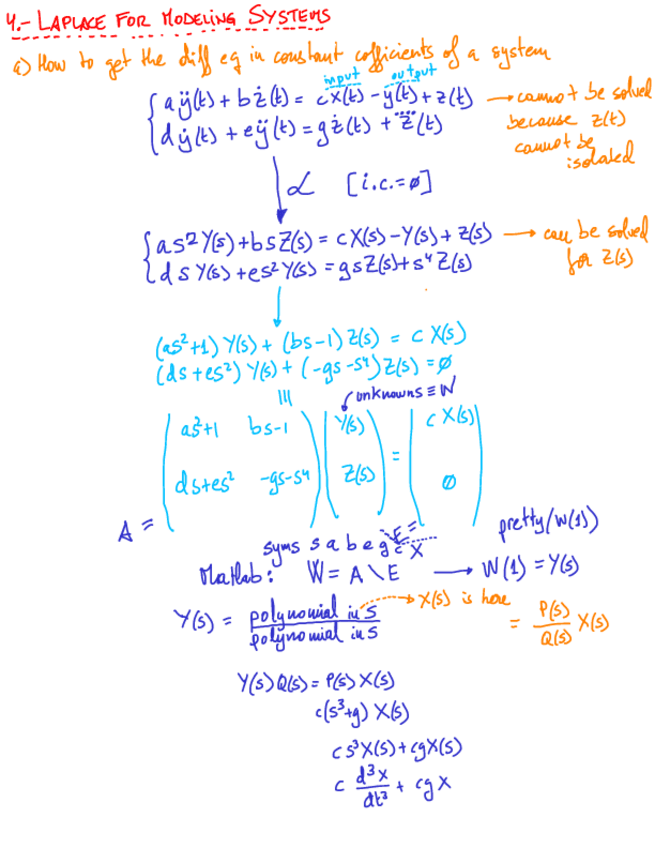 4.- LAPLACE FOR MODELING SYSTEMS
a) How to get the diff eq in constant coefficients of a system
input output
{ aÿ(t) + bż(t) = cx(t) - y(t) + z(t) → cannot be solved
{ dẏ(t) + eÿ(t) = gż(t) + z⃜(t) because z(t)
cannot be
isolated
ℒ [i.c.=ø]
{ as²Y(s)+bsZ(s) = cX(s)-Y(s)+Z(s) → can be solved
{ dsY(s)+es²Y(s) = gsZ(s)+s⁴Z(s) for Z(s)
(as²+1)Y(s) + (bs-1)Z(s) = cX(s)
(ds+es²)Y(s) + (-gs-s⁴)Z(s) = ø
≡ unknowns ≡ W
as²+1 bs-1 Y(s) cX(s)
=
ds+es² -gs-s⁴ Z(s) ø
A = E =
pretty(W(1))
syms s a b e g c X
Matlab: W = A\E → W(1) = Y(s)
Y(s) = polynomial in s / polynomial in s → X(s) is here = P(s)/Q(s) X(s)
Y(s)Q(s) = P(s)X(s)
c(s³+g)X(s)
cs³X(s)+cgX(s)
c d³x/dt³ + cgx